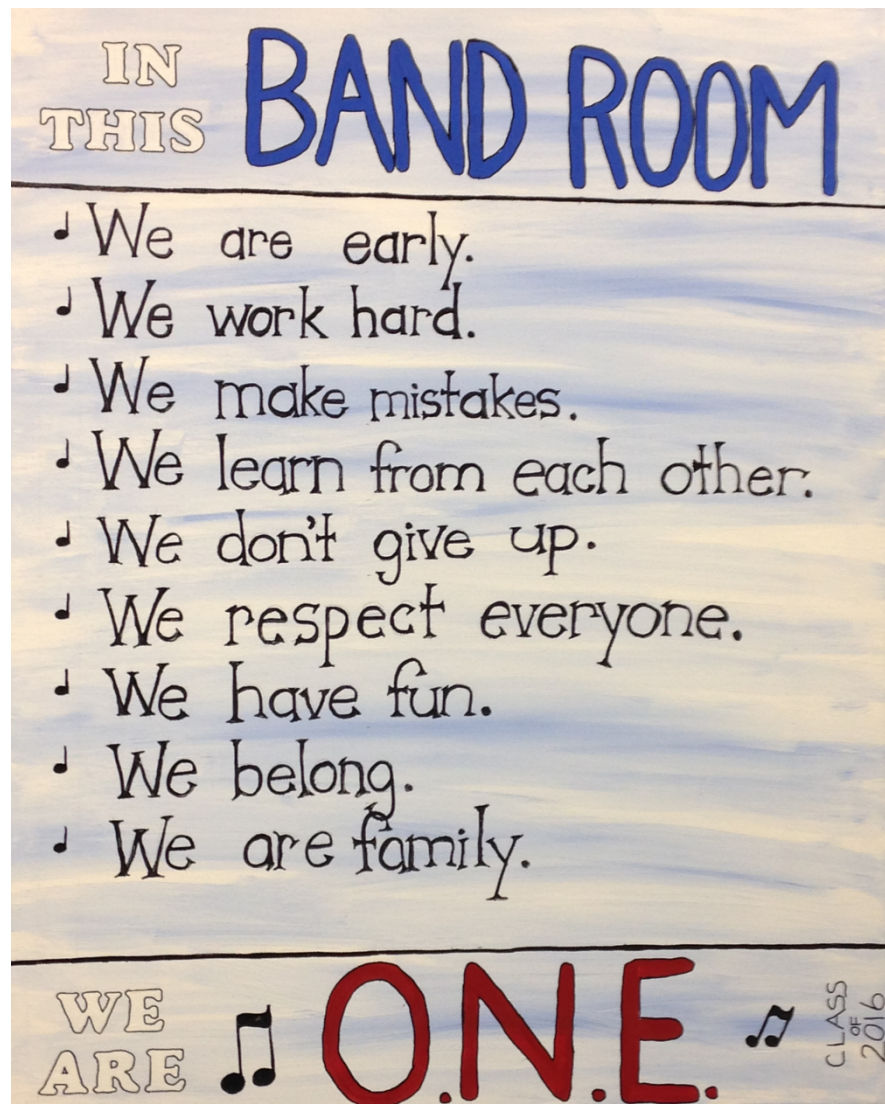 IN
THIS
BAND ROOM
We are early.
We work hard.
We make mistakes.
We learn from each other.
We don't give up.
We respect everyone.
We have fun.
We belong.
We are family.
WE
ARE
O.N.E.
CLASS
OF
2016